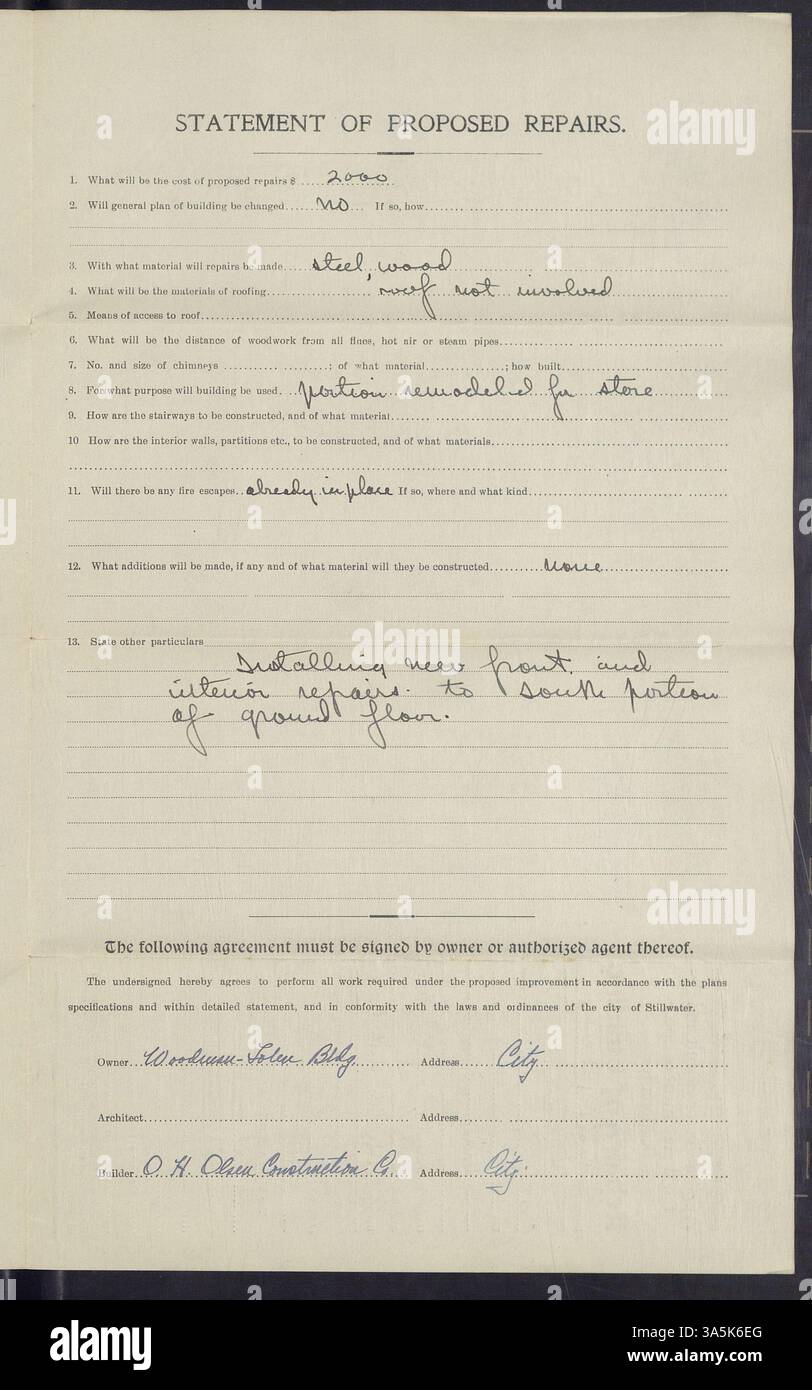 STATEMENT OF PROPOSED REPAIRS.
1. What will be the cost of proposed repairs $ 2000
2. Will general plan of building be changed no If so, how
3. With what material will repairs be made steel, wood
4. What will be the materials of roofing roof not involved
5. Means of access to roof
6. What will be the distance of woodwork from all flues, hot air or steam pipes
7. No. and size of chimneys ; of what material ; how built
8. For what purpose will building be used. portion remodeled for store
9. How are the stairways to be constructed, and of what material
10 How are the interior walls, partitions etc., to be constructed, and of what materials
11. Will there be any fire escapes already in place If so, where and what kind
12. What additions will be made, if any and of what material will they be constructed none
13. State other particulars
Installing new front and
interior repairs to south portion
of ground floor.
The following agreement must be signed by owner or authorized agent thereof.
The undersigned hereby agrees to perform all work required under the proposed improvement in accordance with the plans
specifications and within detailed statement, and in conformity with the laws and ordinances of the city of Stillwater.
Owner Woodman- Bldg. Address City
Architect Address
Builder O. H. Olsen Construction Co. Address City
alamy
alamy
alamy
alamy
Image ID: 3A5K6EG
www.alamy.com